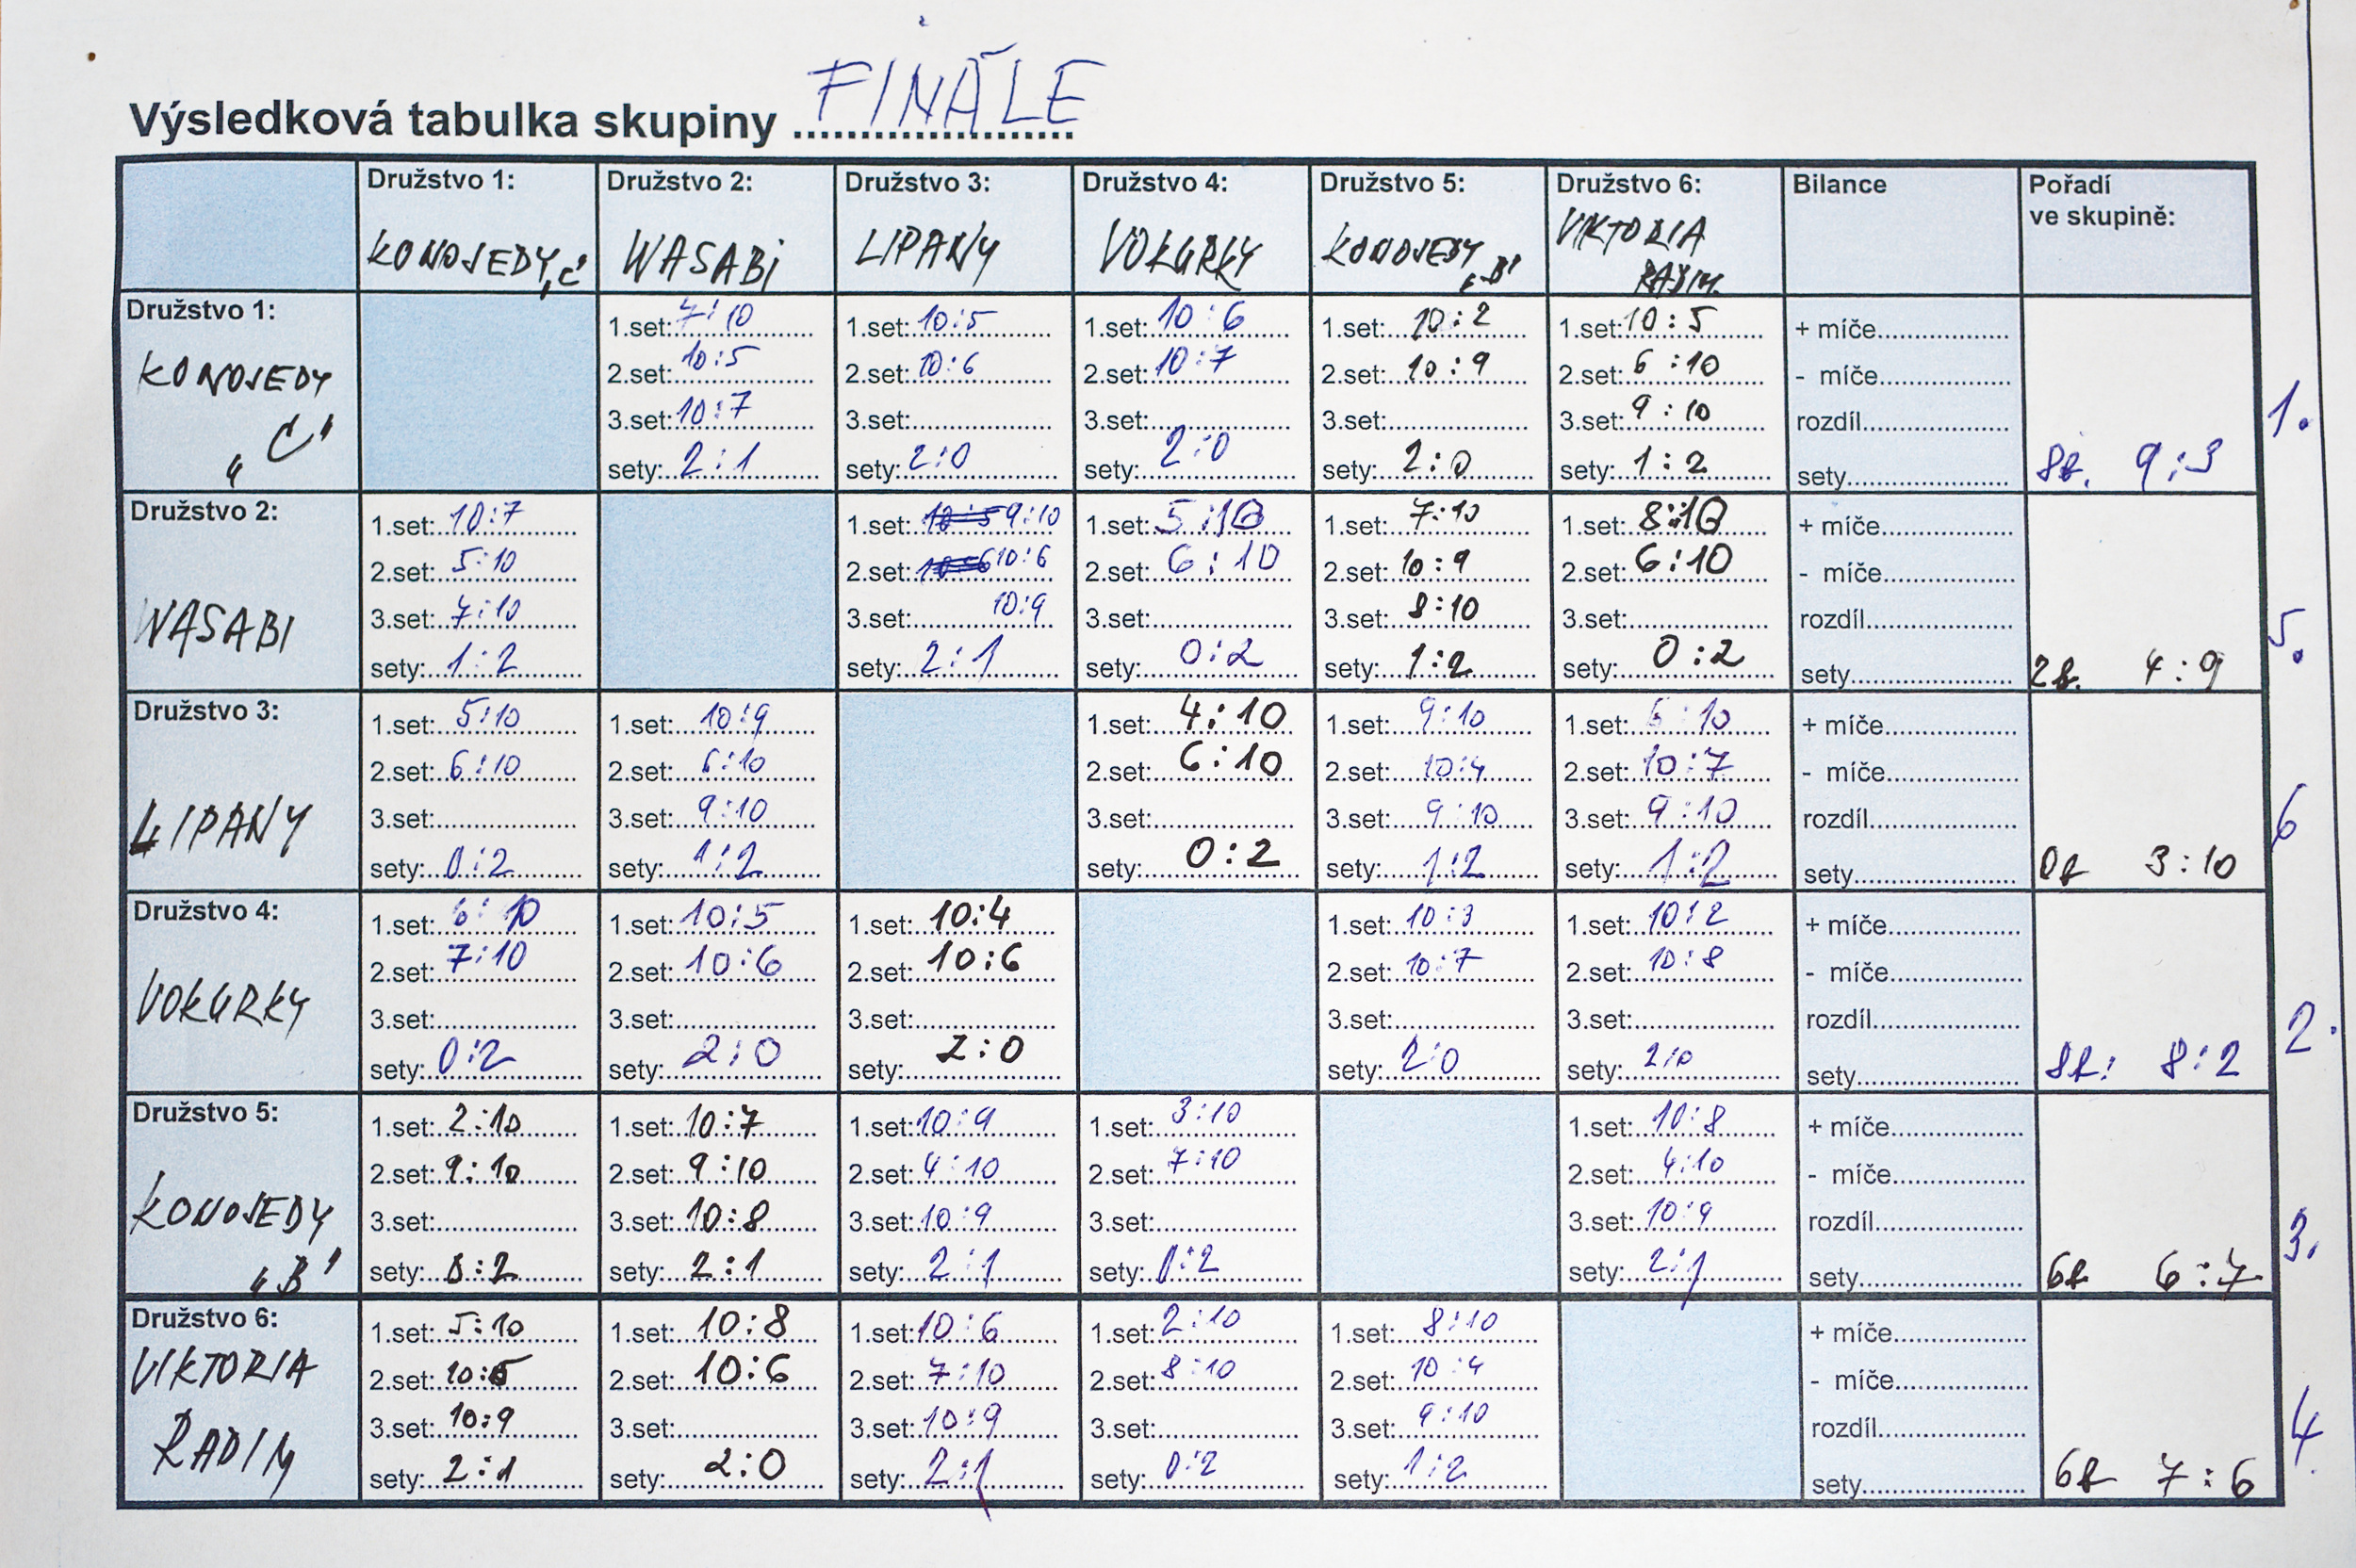 Výsledková tabulka skupiny FINÁLE
Družstvo 1: Družstvo 2: Družstvo 3: Družstvo 4: Družstvo 5: Družstvo 6: Bilance Pořadí
ve skupině:
KONOJEDY „C" WASABI LIPANY VOKURKY KONOJEDY „B" VIKTORIA
RADIM.
Družstvo 1:
KONOJEDY
„C"
1.set: 7:10 1.set: 10:5 1.set: 10:6 1.set: 10:2 1.set: 10:5 + míče
2.set: 10:5 2.set: 10:6 2.set: 10:7 2.set: 10:9 2.set: 6:10 - míče
3.set: 10:7 3.set: 3.set: 3.set: 3.set: 9:10 rozdíl 1.
sety: 2:1 sety: 2:0 sety: 2:0 sety: 2:0 sety: 1:2 sety 8b. 9:3
Družstvo 2:
WASABI
1.set: 10:7 1.set: 9:10 1.set: 5:10 1.set: 7:10 1.set: 8:10 + míče
2.set: 5:10 2.set: 10:6 2.set: 6:10 2.set: 10:9 2.set: 6:10 - míče
3.set: 7:10 3.set: 10:9 3.set: 3.set: 8:10 3.set: rozdíl 5.
sety: 1:2 sety: 2:1 sety: 0:2 sety: 1:2 sety: 0:2 sety 2b. 4:9
Družstvo 3:
LIPANY
1.set: 5:10 1.set: 10:9 1.set: 4:10 1.set: 9:10 1.set: 6:10 + míče
2.set: 6:10 2.set: 6:10 2.set: 6:10 2.set: 10:4 2.set: 10:7 - míče
3.set: 3.set: 9:10 3.set: 3.set: 9:10 3.set: 9:10 rozdíl 6
sety: 0:2 sety: 1:2 sety: 0:2 sety: 1:2 sety: 1:2 sety 0b 3:10
Družstvo 4:
VOKURKY
1.set: 6:10 1.set: 10:5 1.set: 10:4 1.set: 10:3 1.set: 10:2 + míče
2.set: 7:10 2.set: 10:6 2.set: 10:6 2.set: 10:7 2.set: 10:8 - míče
3.set: 3.set: 3.set: 3.set: 3.set: rozdíl 2.
sety: 0:2 sety: 2:0 sety: 2:0 sety: 2:0 sety: 2:0 sety 8b: 8:2
Družstvo 5:
KONOJEDY
„B"
1.set: 2:10 1.set: 10:7 1.set: 10:9 1.set: 3:10 1.set: 10:8 + míče
2.set: 9:10 2.set: 9:10 2.set: 4:10 2.set: 7:10 2.set: 4:10 - míče
3.set: 3.set: 10:8 3.set: 10:9 3.set: 3.set: 10:9 rozdíl 3.
sety: 0:2 sety: 2:1 sety: 2:1 sety: 0:2 sety: 2:1 sety 6b 6:7
Družstvo 6:
VIKTORIA
RADIM
1.set: 5:10 1.set: 10:8 1.set: 10:6 1.set: 2:10 1.set: 8:10 + míče
2.set: 10:6 2.set: 10:6 2.set: 7:10 2.set: 8:10 2.set: 10:4 - míče
3.set: 10:9 3.set: 3.set: 10:9 3.set: 3.set: 9:10 rozdíl 4.
sety: 2:1 sety: 2:0 sety: 2:1 sety: 0:2 sety: 1:2 sety 6b 7:6